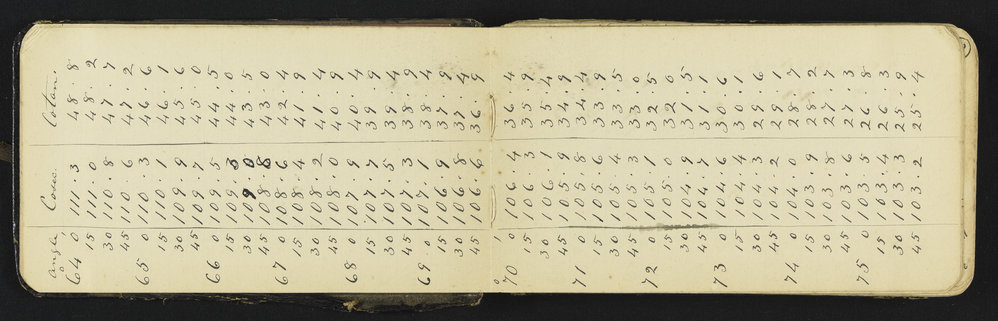 Angle, Cosec. Cotan.
64° 0' 111.3 48.8
15 111.0 48.2
30 110.8 47.7
45 110.6 47.2
65 0 110.3 46.6
15 110.1 46.1
30 109.9 45.6
45 109.7 45.0
66 0 109.5 44.5
15 109.3 44.0
30 109.0 43.5
45 108.8 43.0
67 0 108.6 42.4
15 108.4 41.9
30 108.2 41.4
45 108.0 40.9
68 0 107.9 40.4
15 107.7 39.9
30 107.5 39.4
45 107.3 38.9
69 0 107.1 38.4
15 106.9 37.9
30 106.8 37.4
45 106.6 36.9
70° 0' 106.4 36.4
15 106.3 35.9
30 106.1 35.4
45 105.9 34.9
71 0 105.8 34.4
15 105.6 33.9
30 105.4 33.5
45 105.3 33.0
72 0 105.1 32.5
15 105.0 32.0
30 104.9 31.5
45 104.7 31.1
73 0 104.6 30.6
15 104.4 30.1
30 104.3 29.6
45 104.2 29.1
74 0 104.0 28.7
15 103.9 28.2
30 103.8 27.7
45 103.6 27.3
75 0 103.5 26.8
15 103.4 26.3
30 103.3 25.9
45 103.2 25.4